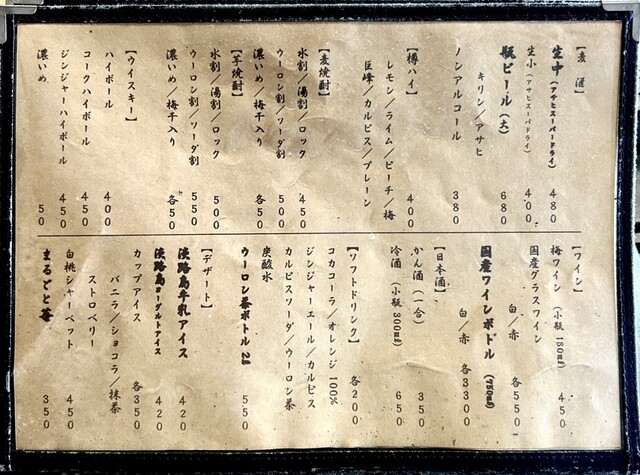 【麦酒】
生中（アサヒスーパードライ） 480
生小（アサヒスーパードライ） 400
瓶ビール（大） 680
キリン／アサヒ
ノンアルコール 380
【樽ハイ】 400
レモン／ライム／ピーチ／梅
巨峰／カルピス／プレーン
【麦焼酎】
水割／湯割／ロック 450
ウーロン割／ソーダ割 500
濃いめ／梅干入り 各50
【芋焼酎】
水割／湯割／ロック 500
ウーロン割／ソーダ割 550
濃いめ／梅干入り 各50
【ウイスキー】
ハイボール 400
コークハイボール 450
ジンジャーハイボール 450
濃いめ 50
【ワイン】
梅ワイン（小瓶180㎖） 450
国産グラスワイン
白／赤 各550
国産ワインボドル（750㎖）
白／赤 各3300
【日本酒】
かん酒（一合） 350
冷酒（小瓶300㎖） 650
【ソフトドリンク】 各200
コカコーラ／オレンジ100%
ジンジャーエール／カルピス
カルピスソーダ／ウーロン茶
炭酸水
ウーロン茶ボトル2ℓ 550
【デザート】
淡路島牛乳アイス 420
淡路島ヨーグルトアイス 420
カップアイス 各350
バニラ／ショコラ／抹茶
ストロベリー
白桃シャーベット 450
まるごと苺 350